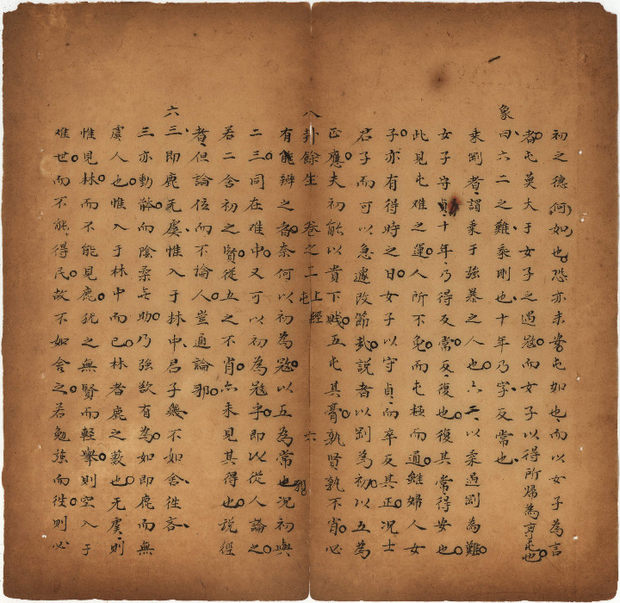 初之德何如也恐亦未嘗屯如也而以女子為言
者屯莫大于女子之遇寇而女子以得所歸為亨屯也
象曰六二之難乘剛也十年乃字反常也
乘剛者謂乘于強暴之人也六二以柔遇剛為難
女子守貞十年乃得反常反復也復其常得安也
此見屯难之運人所不免而屯極而通雖婦人女
子亦有得時之日女子以守貞而卒反其正况士
君子而可以急遽改節哉説者以剛為初以五為
正應夫初能以貴下賤五屯其膏孰賢孰不肖必
八卦餘生 卷之二 上經 屯 六
有能辨之者奈何以初為寇以五為常也况初與
二三同在难中又可以初為寇乎即以從人論之
若二舍初之賢從五之不肖亦未見其得也説經
者但論位而不論人豈通論邪
六三即鹿无虞惟入于林中君子幾不如舍往吝
三亦動體而陰柔無助乃強欲有為如即鹿而無
虞人也惟入于林中而已林者鹿之藪也无虞則
惟見林而不能見鹿犹之無賢而輕舉則空入于
难世而不能得民故不如舍之若勉強而往則必